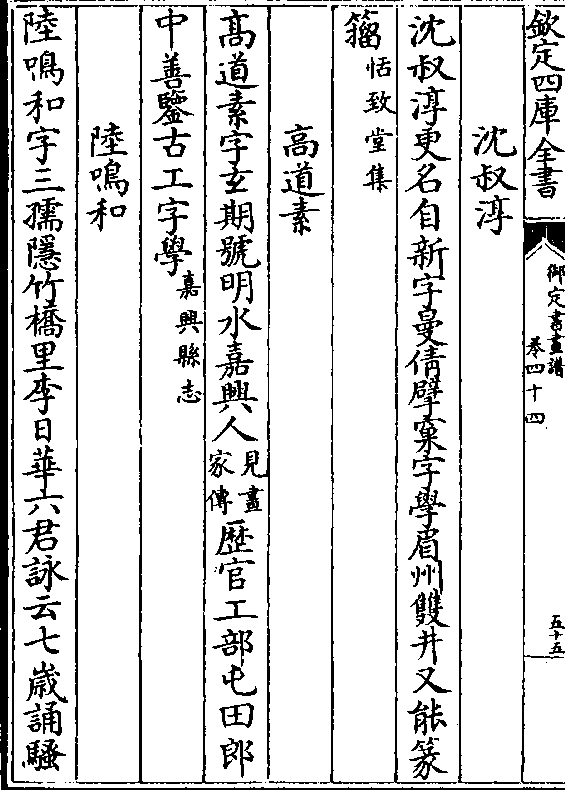 欽定四庫全書
御定書畫譜
卷四十四
五十五
沈叔淳
沈叔淳更名自新字曼倩擘窠字學眉州雙井又能篆
籀恬致堂集
高道素
高道素字玄期號明水嘉興人見畫家傳歴官工部屯田郎
中善鑒古工字學嘉興縣志
陸鳴和
陸鳴和字三孺隱竹橋里李日華六君詠云七歲誦騷